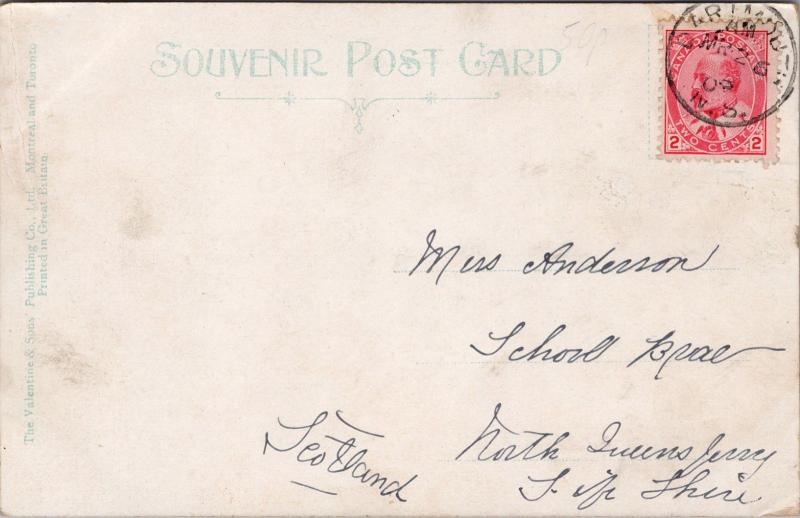 SOUVENIR POST CARD
50p
CANADA POSTAGE
TWO CENTS
2 2
AM
MR 29
09
N.S.
Miss Anderson
School Brae
North Queensferry
Scotland
The Valentine & Sons' Publishing Co., Ltd. Montreal and Toronto
Printed in Great Britain.